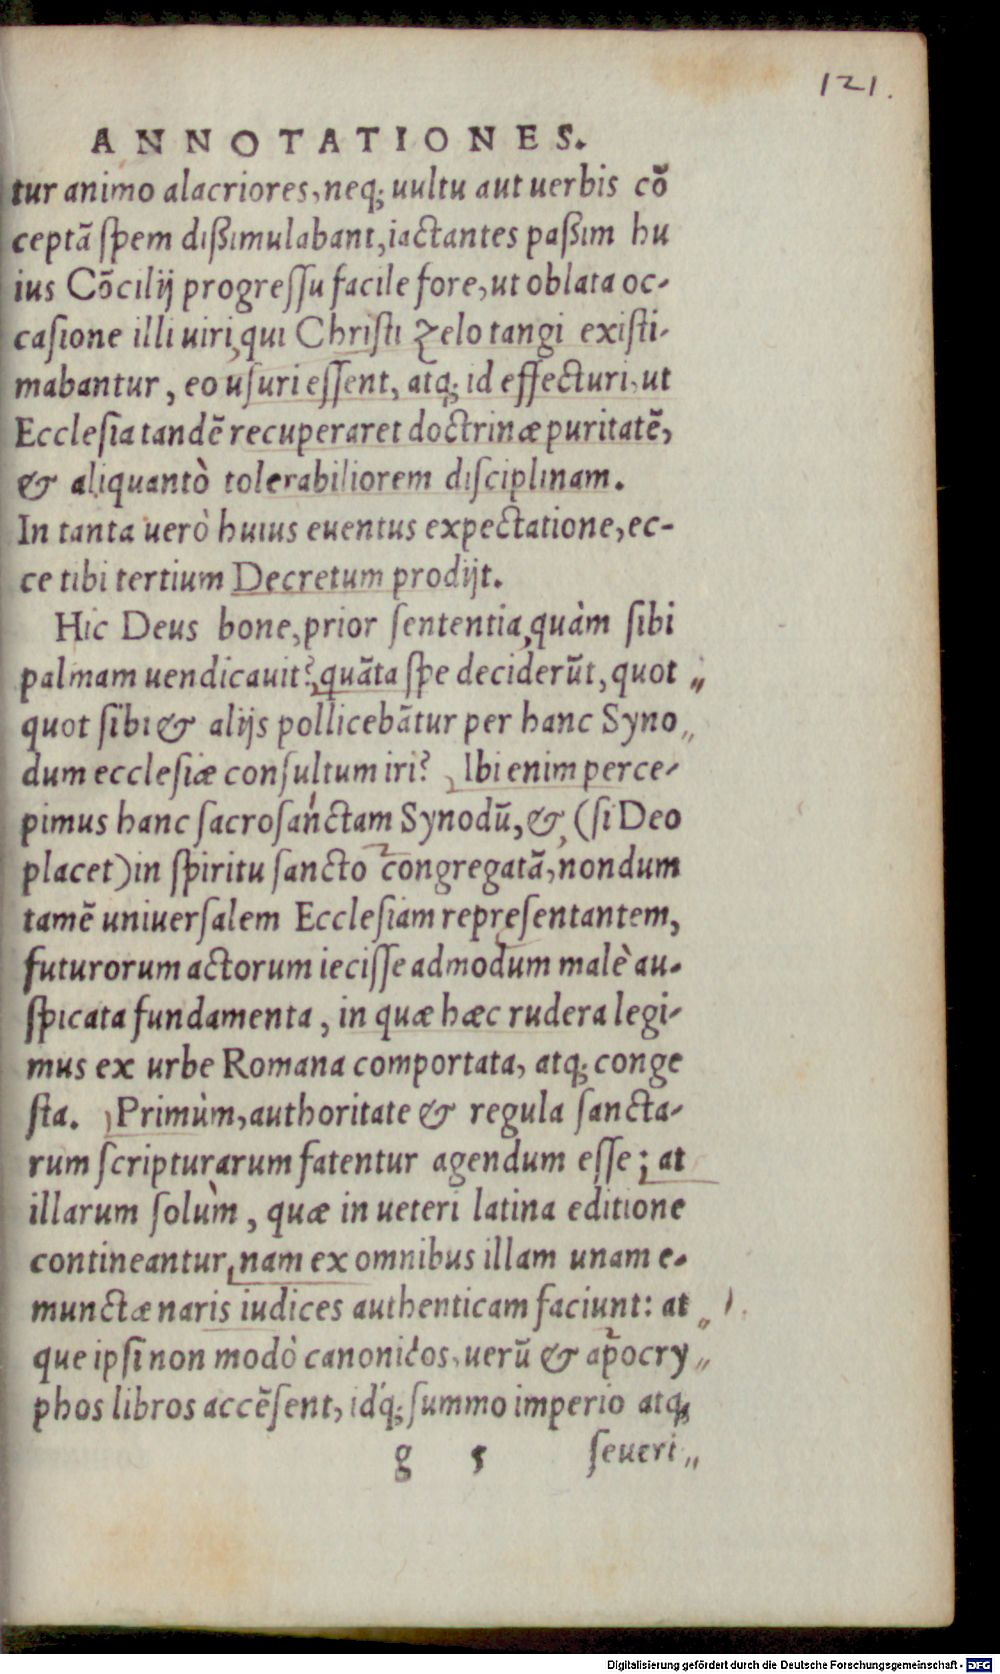 121.
ANNOTATIONES.
tur animo alacriores, neq; uultu aut uerbis cõ
ceptã ſpem dißimulabant, iactantes paßim hu
ius Cõcilij progreſſu facile fore, ut oblata oc-
caſione illi uiri, qui Chriſti zelo tangi exiſti-
mabantur, eo uſuri eſſent, atq; id effecturi, ut
Eccleſia tandẽ recuperaret doctrinæ puritatẽ,
& aliquantò tolerabiliorem diſciplinam.
In tanta uerò huius euentus expectatione, ec-
ce tibi tertium Decretum prodijt.
Hic Deus bone, prior ſententia, quàm ſibi
palmam uendicauit? quãta ſpe deciderũt, quot
quot ſibi & alijs pollicebãtur per hanc Syno
dum eccleſiæ conſultum iri? Ibi enim perce-
pimus hanc ſacroſanctam Synodũ, & (ſi Deo
placet) in ſpiritu ſancto congregatã, nondum
tamẽ uniuerſalem Eccleſiam repręſentantem,
futurorum actorum ieciſſe admodum malè au-
ſpicata fundamenta, in quæ hæc rudera legi-
mus ex urbe Romana comportata, atq; conge
ſta. Primùm, authoritate & regula ſancta-
rum ſcripturarum fatentur agendum eſſe; at
illarum ſolùm, quæ in ueteri latina editione
contineantur, nam ex omnibus illam unam e-
munctæ naris iudices authenticam faciunt: at
que ipſi non modò canonicos, uerũ & apocry
phos libros accẽſent, idq́; ſummo imperio atq;
g 5 ſeueri
Digitalisierung gefördert durch die Deutsche Forschungsgemeinschaft - DFG